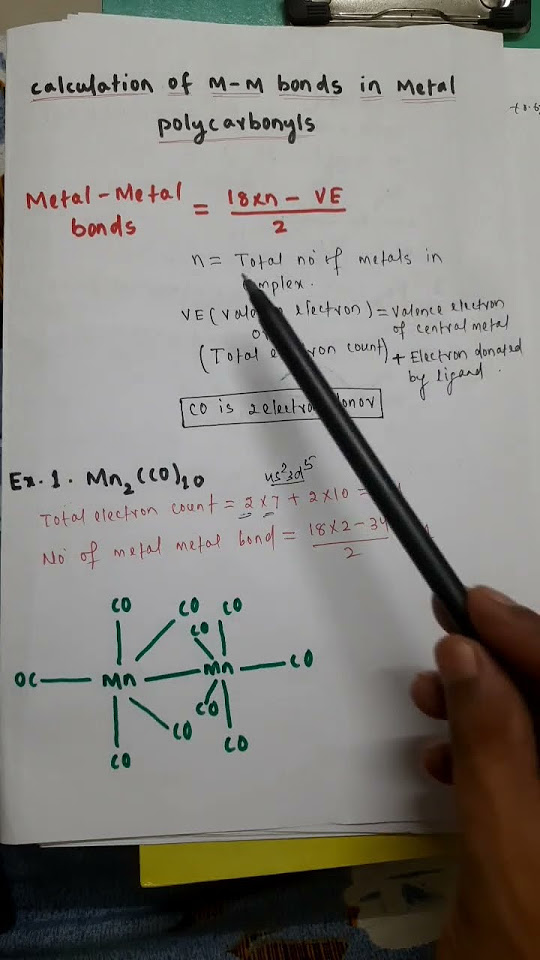 calculation of M-M bonds in Metal
polycarbonyls
Metal-Metal bonds = 18xn - VE / 2
n = Total no of metals in
VE ( electron) = Valence electron of central metal
(Total count) + Electron donated by ligand.
CO is 2 donor
Ex. 1. Mn2(CO)10
4s² 3d⁵
Total electron count = 2 x 7 + 2 x 10 =
No of metal metal bond = 18 x 2 - 34 / 2
CO CO CO
CO
OC Mn Mn CO
CO
CO
CO CO